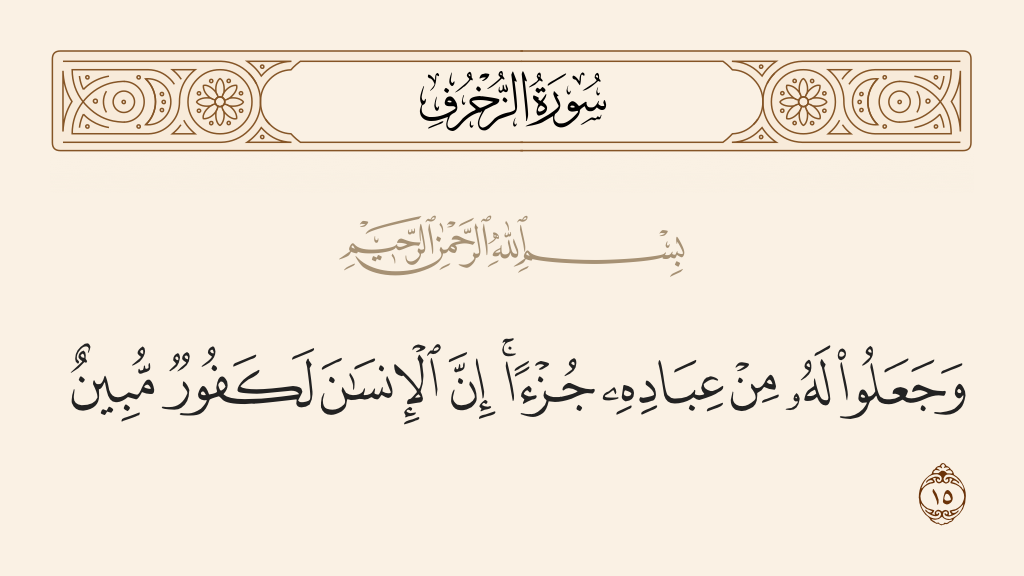 سُورَةُ الزُّخْرُفِ
بِسْمِ ٱللَّهِ ٱلرَّحْمَٰنِ ٱلرَّحِيمِ
وَجَعَلُوا۟ لَهُۥ مِنْ عِبَادِهِۦ جُزْءًا ۚ إِنَّ ٱلْإِنسَٰنَ لَكَفُورٌ مُّبِينٌ
١٥